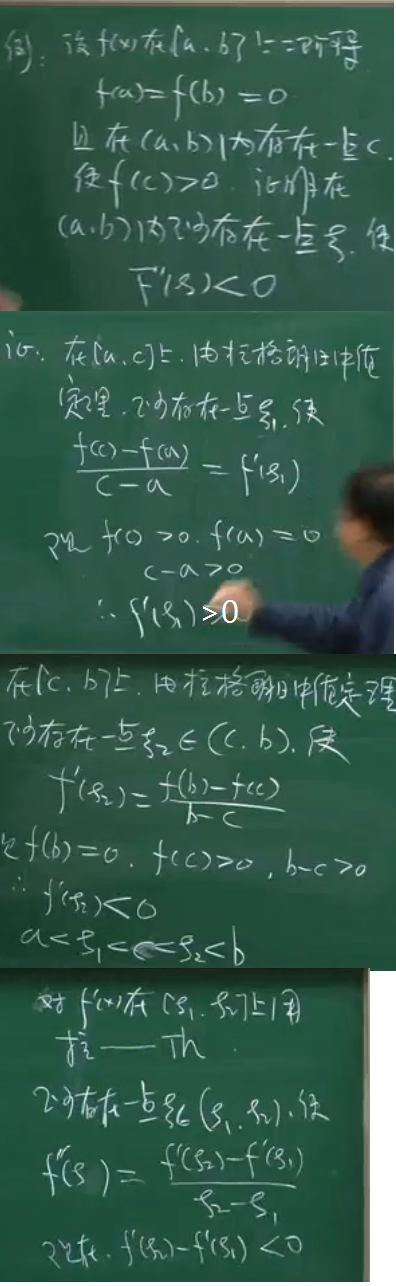 例: 设f(x)在[a,b]上二阶可导
f(a)=f(b)=0
且在(a,b)内存在一点c.
使f(c)>0. 证明在
(a,b)内至少存在一点ξ, 使
f''(ξ)<0
证: 在[a,c]上, 由拉格朗日中值
定理, 至少存在一点ξ₁, 使
\frac{f(c)-f(a)}{c-a}=f'(ξ₁)
现 f(c)>0. f(a)=0
c-a>0
∴ f'(ξ₁)>0
在[c,b]上, 由拉格朗日中值定理
至少存在一点ξ₂∈(c,b), 使
f'(ξ₂)=\frac{f(b)-f(c)}{b-c}
f(b)=0, f(c)>0, b-c>0
∴ f'(ξ₂)<0
a<ξ₁<c<ξ₂<b
对f'(x)在[ξ₁,ξ₂]上用
拉——Th.
至少存在一点ξ∈(ξ₁,ξ₂), 使
f''(ξ)=\frac{f'(ξ₂)-f'(ξ₁)}{ξ₂-ξ₁}
现在, f'(ξ₂)-f'(ξ₁)<0